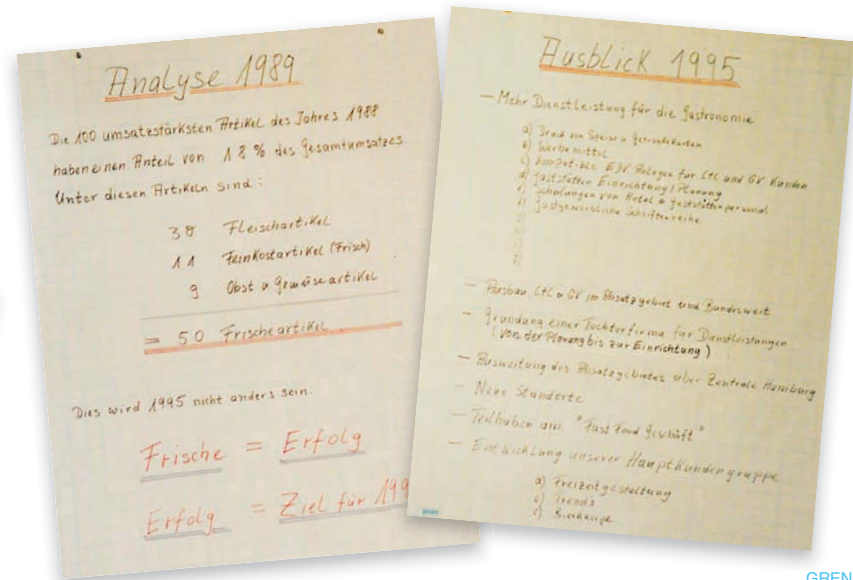 Analyse 1989
Die 100 umsatzstärksten Artikel des Jahres 1988
haben einen Anteil von 18 % des Gesamtumsatzes.
Unter diesen Artikeln sind:
30 Fleischartikel
11 Feinkostartikel (Frisch)
9 Obst u Gemüseartikel
= 50 Frischeartikel
Dies wird 1995 nicht anders sein.
Frische = Erfolg
Erfolg = Ziel für 199
Ausblick 1995
— Mehr Dienstleistung für die Gastronomie
a) Druck von Speise u Getränkekarten
b) Werbemittel
c) kompatible EDV Anlagen für LtL und GV Kunden
d) Gaststätten Einrichtung / Planung
e) Schulungen von Hotel u Gaststättenpersonal
f) Gastgewerbliche Schriftenreihe
— Ausbau LtL u GV im Absatzgebiet und Bundesweit
— Gründung einer Tochterfirma für Dienstleistungen
(von der Planung bis zur Einrichtung)
— Ausweitung des Absatzgebietes über Zentrale Hamburg
— Neue Standorte
— Teilhaben am "Fast Food Geschäft"
— Entwicklung unserer Hauptkundengruppe
a) Freizeitgestaltung
b) Trends
c) Bierkneipe
GREN